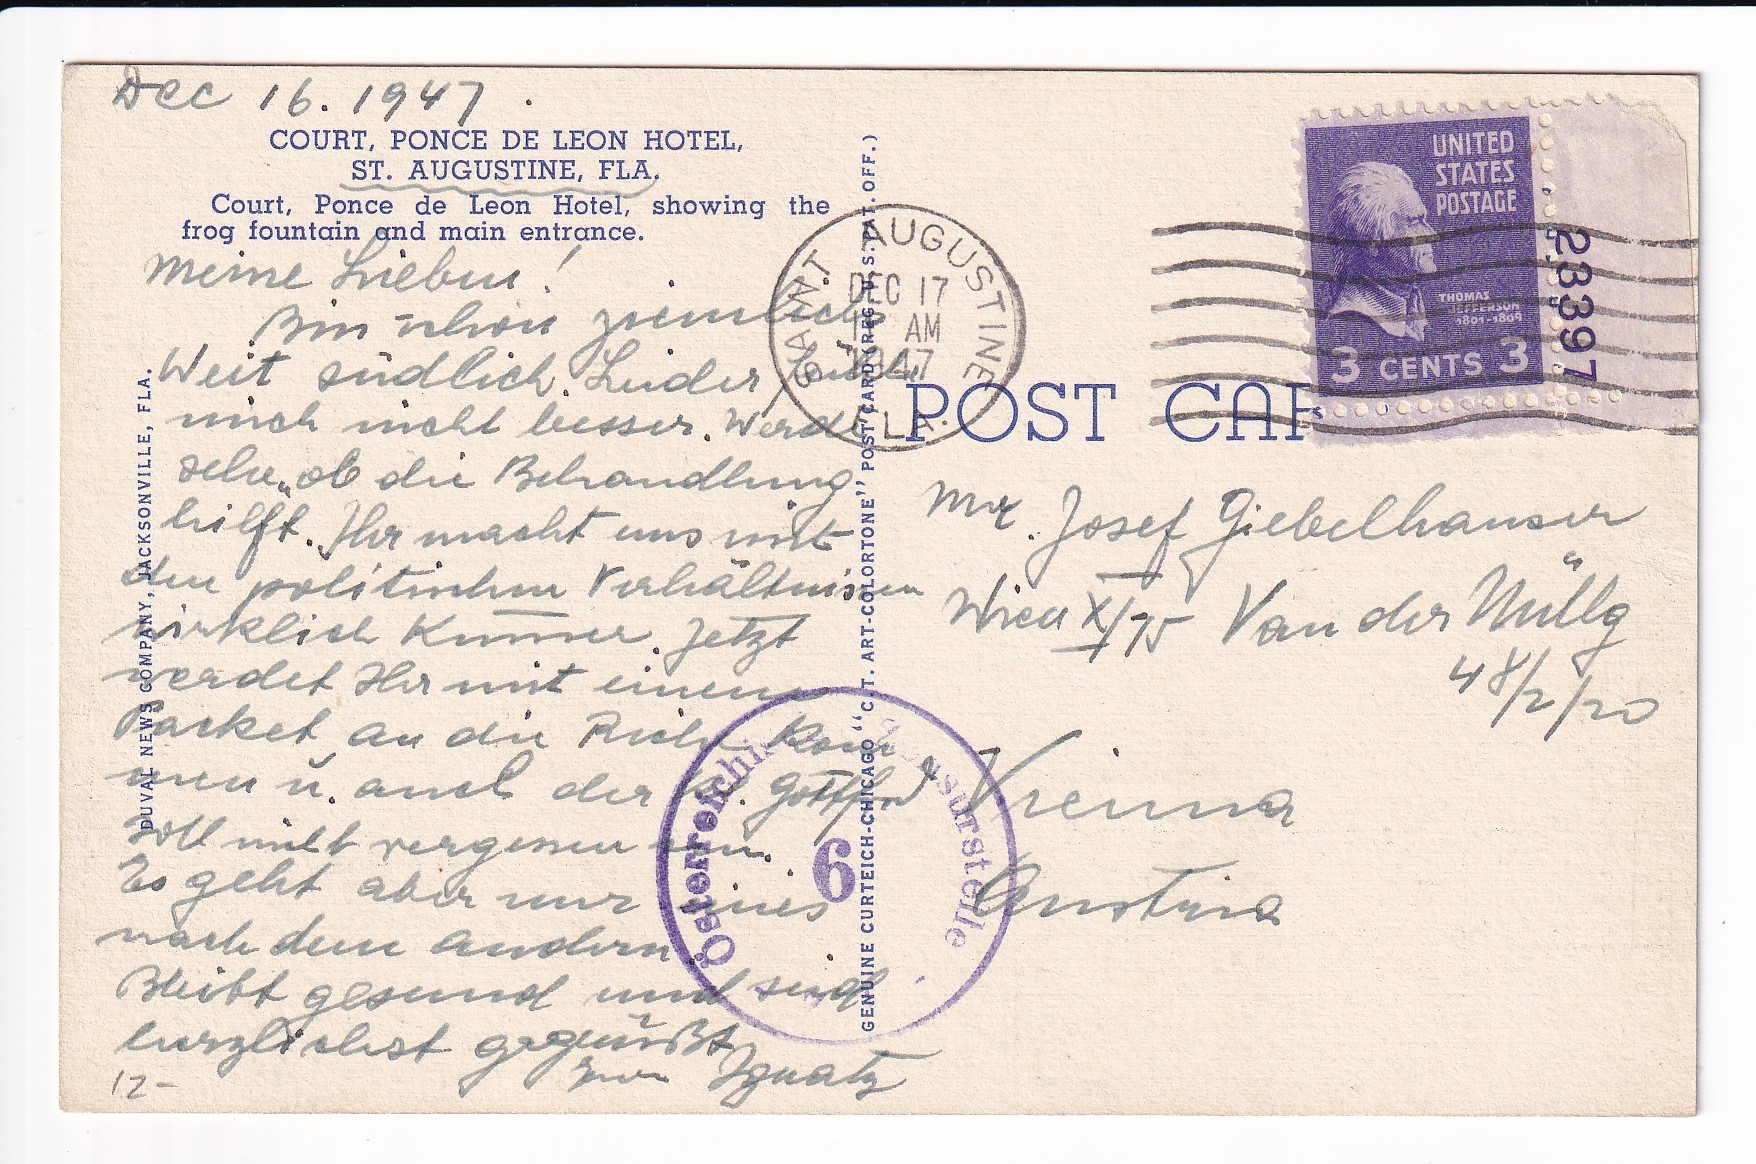 Dec 16. 1947.
COURT, PONCE DE LEON HOTEL,
ST. AUGUSTINE, FLA.
Court, Ponce de Leon Hotel, showing the
frog fountain and main entrance.
Meine Lieben!
Bin schon ziemlich
Weit südlich. Leider
mich nicht besser. Werde
sehen, ob die Behandlung
hilft. Ihr macht uns mit
den politischen Verhältnissen
wirklich Kummer. Jetzt
werdet Ihr mit einem
Packet an die Reihe kom
men u. auch der
soll nicht vergessen sein.
Es geht aber nur eines
nach dem andern
Bleibt gesund und seid
herzlichst gegrüßt
Ignatz
12-
DUVAL NEWS COMPANY, JACKSONVILLE, FLA.
GENUINE CURTEICH-CHICAGO "C.T. ART-COLORTONE" POST CARD (REG. U.S. PAT. OFF.)
SAINT AUGUSTINE
DEC 17
AM
1947
FLA.
UNITED
STATES
POSTAGE
THOMAS
JEFFERSON
1801-1809
3 CENTS 3
23397
POST CAR
Mr. Josef Giebelhauser
Wien X/75 Van der Nüllg
48/2/20
Vienna
Austria
Österreichische Zensurstelle
6